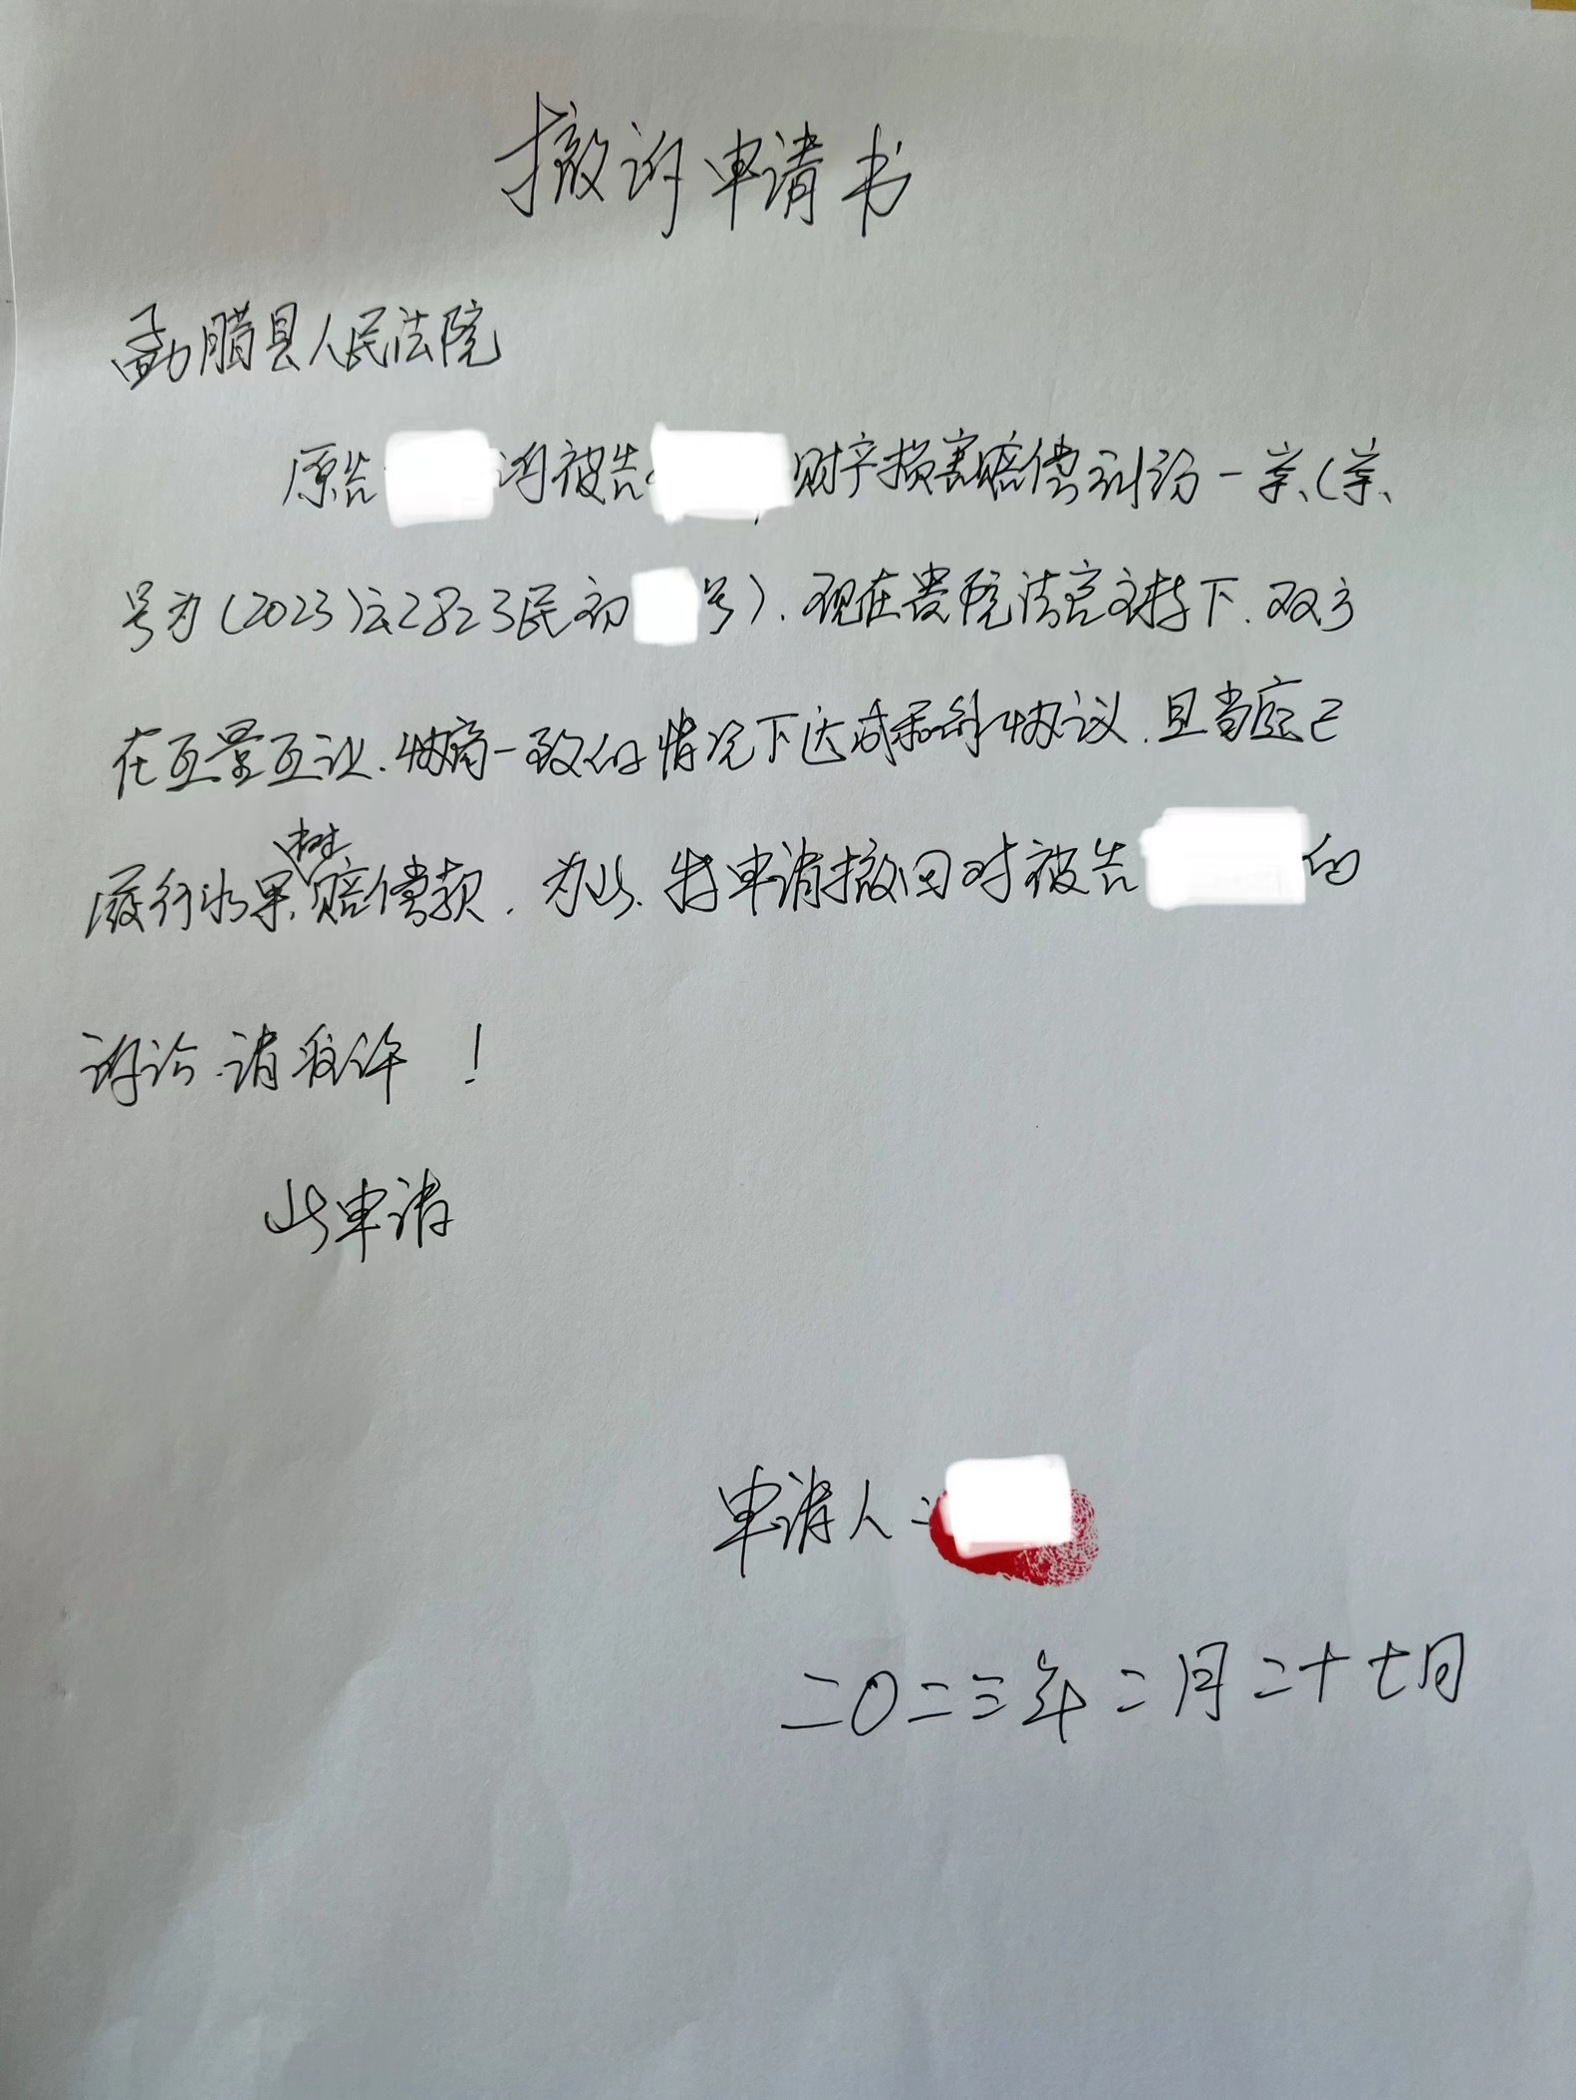 撤诉申请书
勐腊县人民法院
原告 诉被告 财产损害赔偿纠纷一案(案
号为(2023)云2823民初 号).现在贵院法官主持下.双方
在互谅互让.协商一致的情况下达成和解协议.且当庭已
履行水果树赔偿款.为此.特申请撤回对被告 的
诉讼.请准许!
此申请
申请人:
二〇二三年二月二十七日